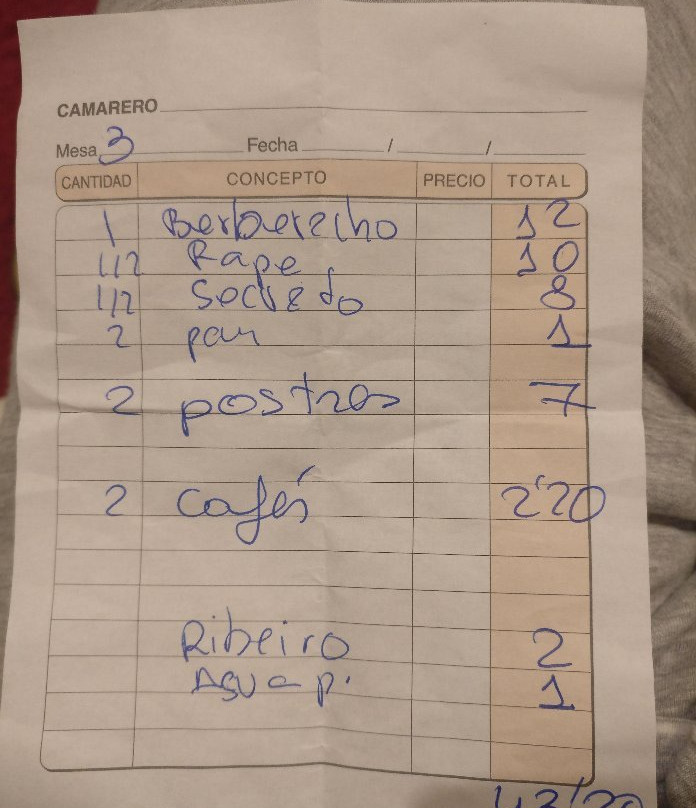 CAMARERO
Mesa 3 Fecha / /
CANTIDAD CONCEPTO PRECIO TOTAL
1 Berberecho 12
1/2 Rape 10
1/2 Secreto 8
2 pan 1
2 postres 7
2 Cafés 2'20
Ribeiro 2
Agua p. 1
43/20